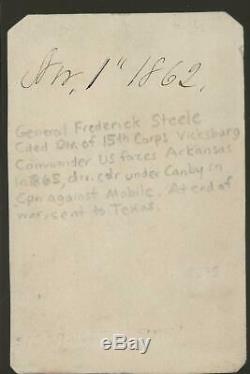 Nov. 1st 1862.
General Frederick Steele
Cded Div. of 15th Corps Vicksburg
Commander US forces Arkansas
in 1865, div. cdr under Canby in
Cpn against Mobile. At end of
war, sent to Texas.